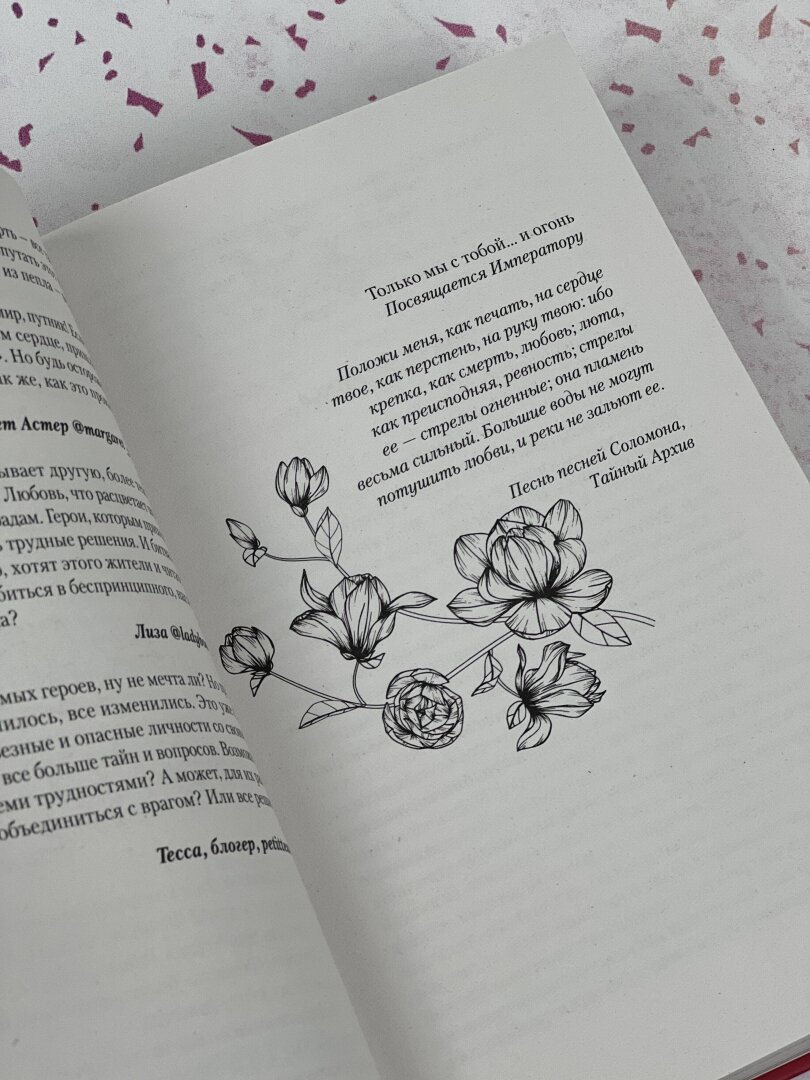 путать
из пепла –
мир, путник!
м сердце,
Но будь
к же, как это
ет Астер @margaret
ывает другую, более
Любовь, что расцветает
адам. Герои, которым
ь трудные решения. И
о, хотят этого жители и
биться в беспринципного,
а?
Лиза
мых героев, ну не мечта ли? Но
нилось, все изменились. Это уже
езные и опасные личности со
все больше тайн и вопросов.
еми трудностями? А может, для их
объединиться с врагом? Или все
Тесса, блогер,
Только мы с тобой... и огонь
Посвящается Императору
Положи меня, как печать, на сердце
твое, как перстень, на руку твою: ибо
крепка, как смерть, любовь; люта,
как преисподняя, ревность; стрелы
ее — стрелы огненные; она пламень
весьма сильный. Большие воды не могут
потушить любви, и реки не зальют ее.
Песнь песней Соломона,
Тайный Архив